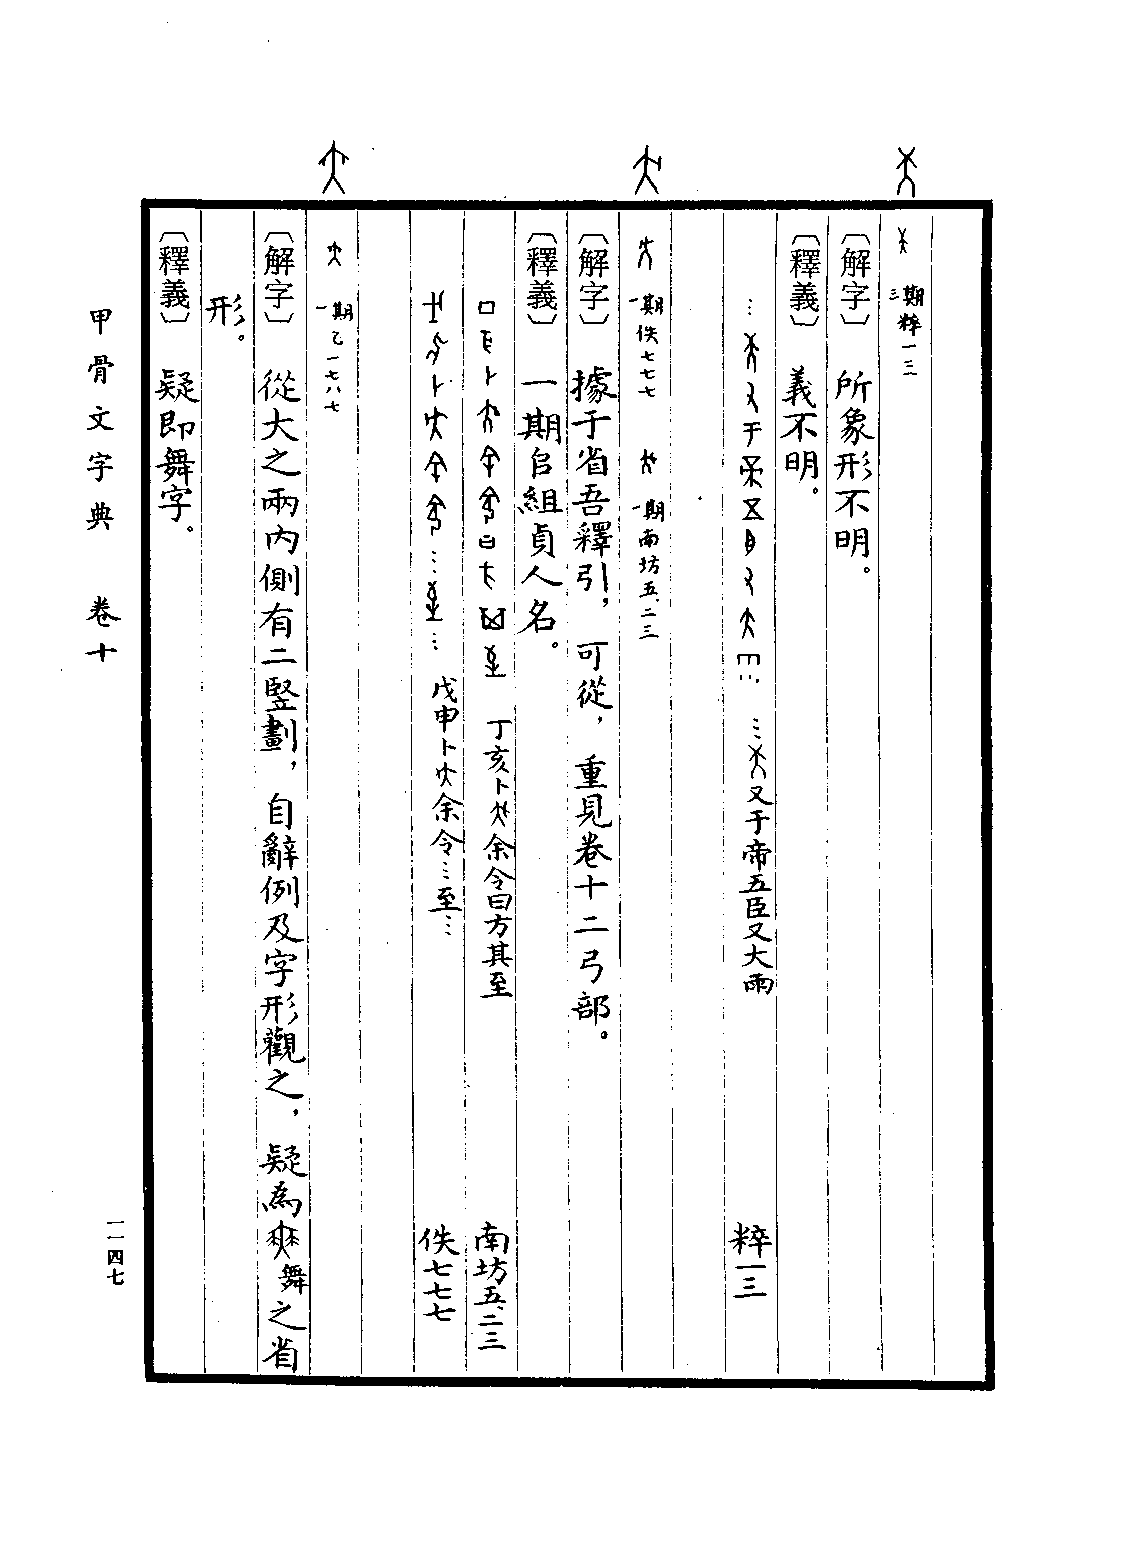 三期 粹一三
〔解字〕 所象形不明。
〔釋義〕 義不明。
…又于帝五臣又大雨 粹一三
一期 佚七七七 一期 南坊五.二三
〔解字〕 據于省吾釋引，可從，重見卷十二弓部。
〔釋義〕 一期𠂤組貞人名。
丁亥卜余令曰方其至 南坊五.二三
戊申卜余令…至… 佚七七七
一期 乙一七八七
〔解字〕 從大之兩内側有二竪劃，自辭例及字形觀之，疑為舞之省
形。
〔釋義〕 疑即舞字。
甲骨文字典 卷十
一一四七